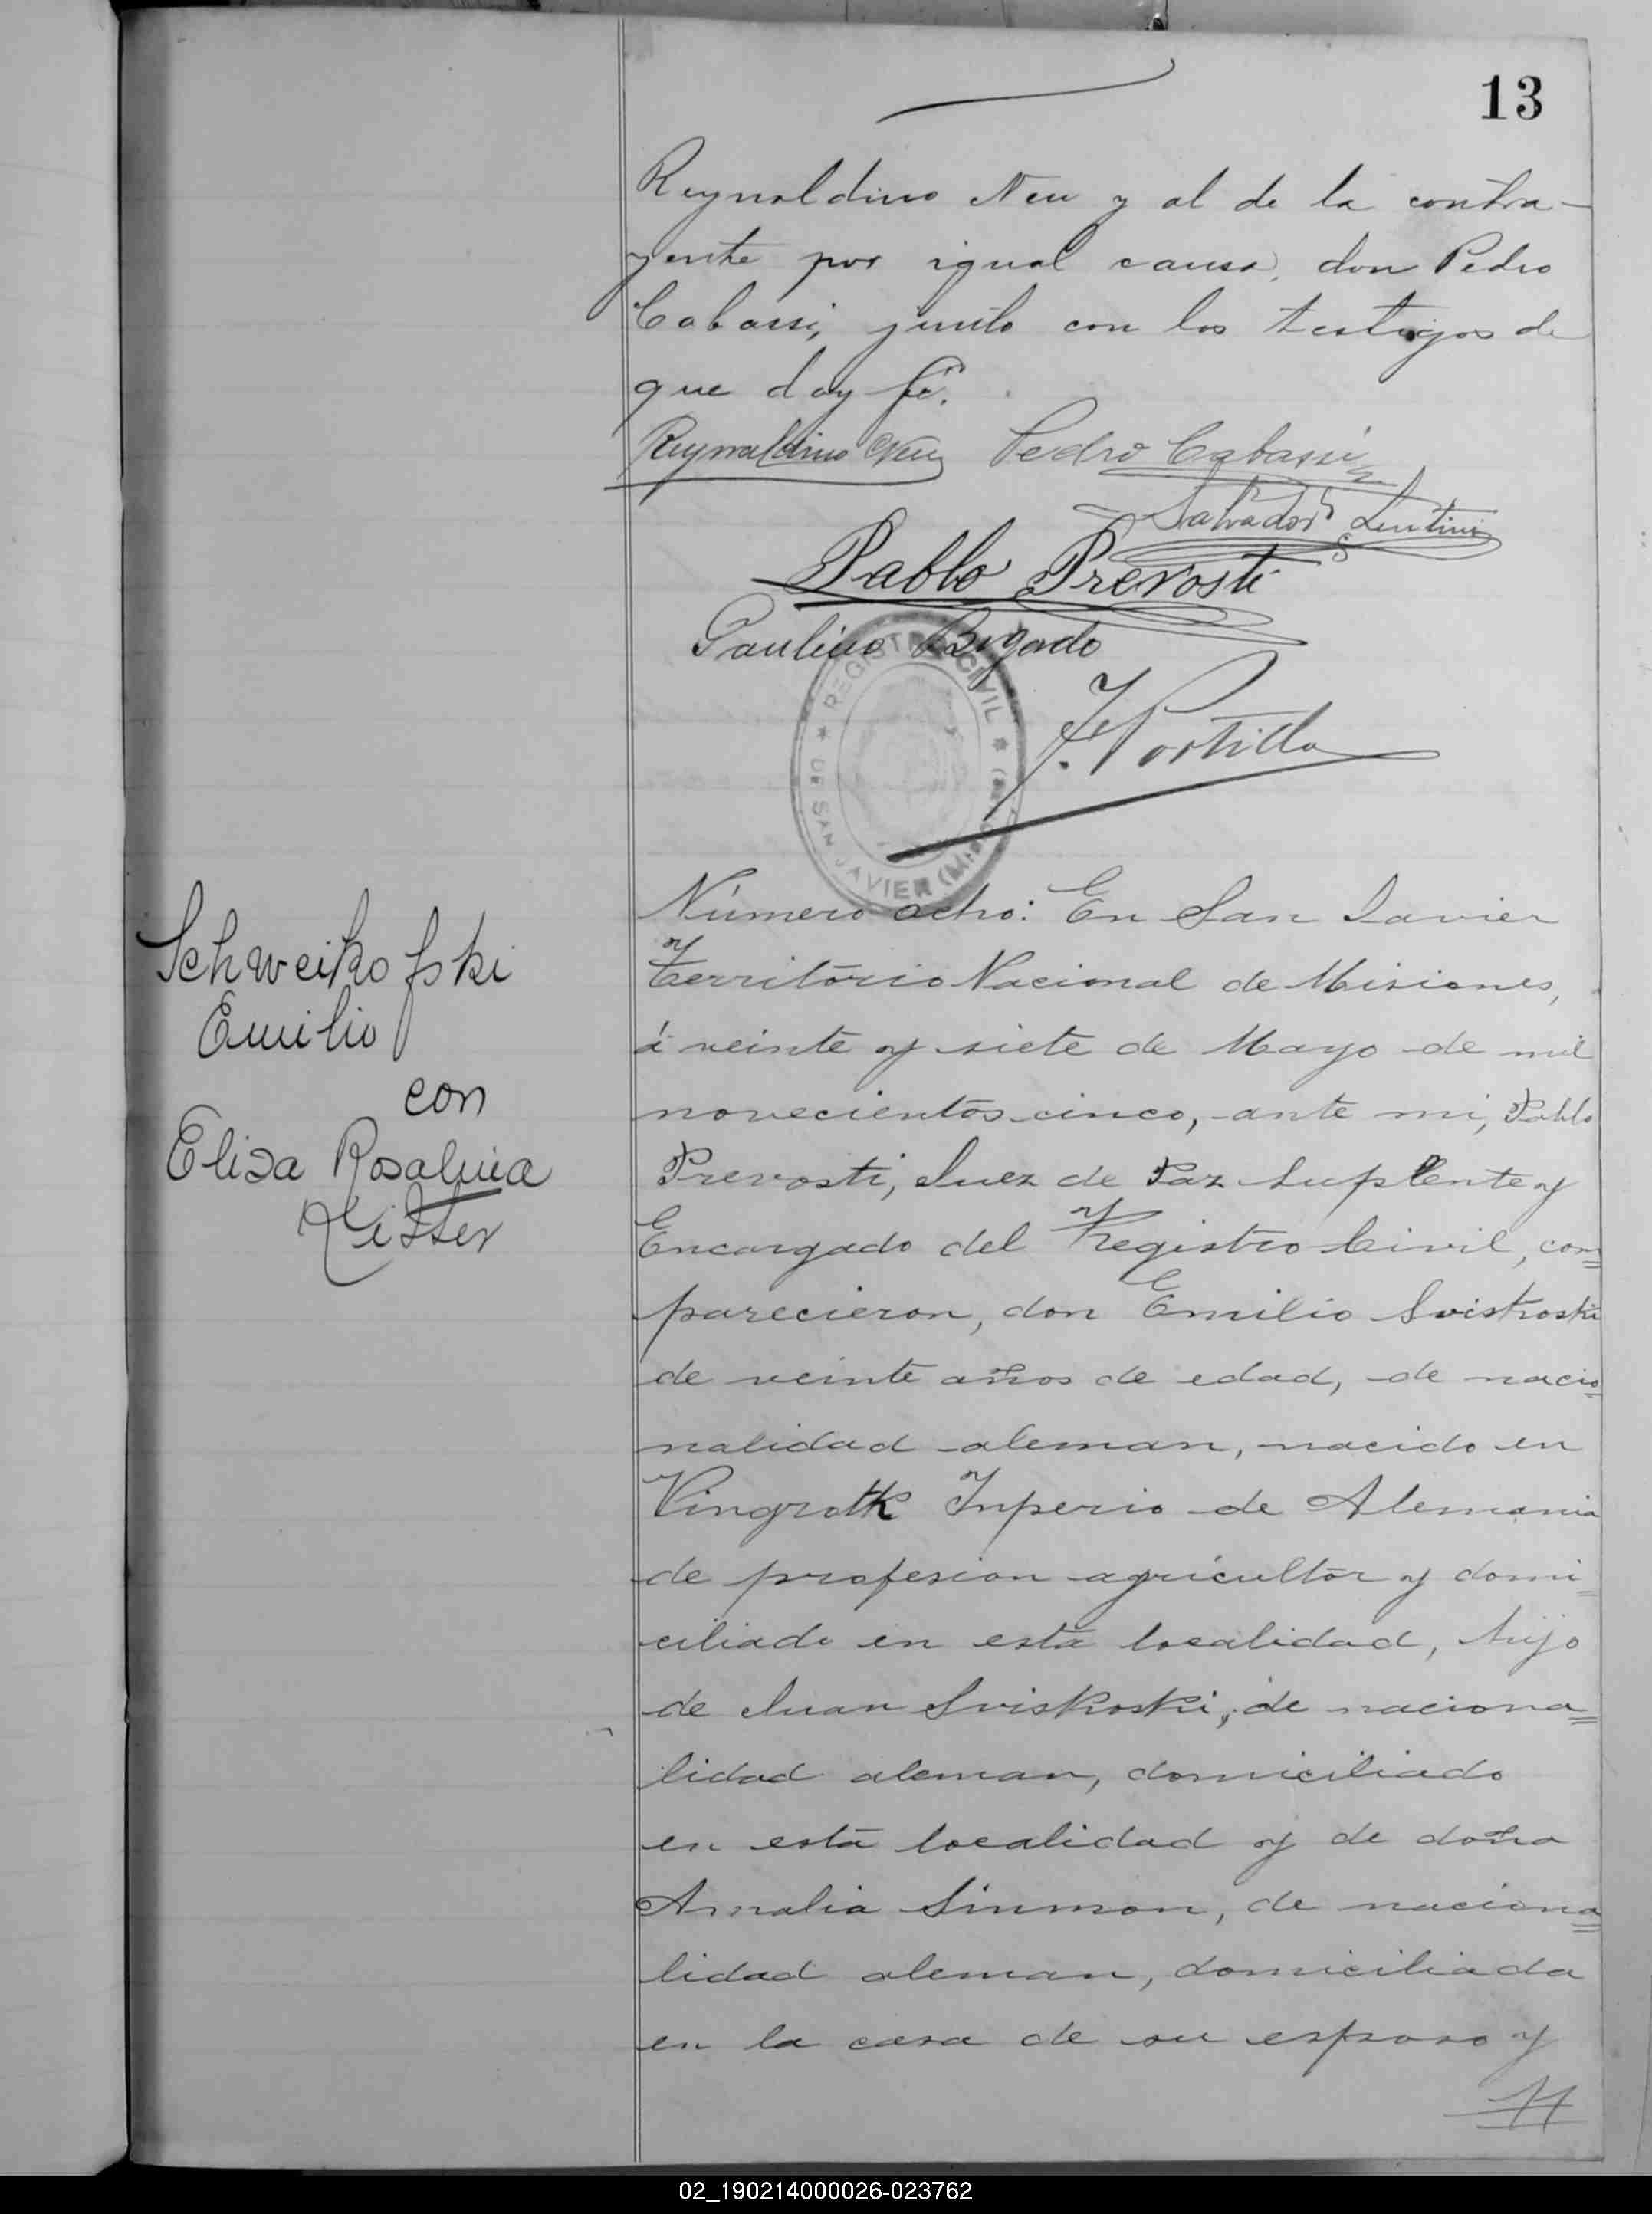 13
Reynaldino Neu y al de la contra-
yente por igual causa, don Pedro
Cabassi, junto con los testigos de
que doy fé.
Reynaldino Neu Pedro Cabassi
Salvador Lentini
Pablo Prevosti
Paulino
REGISTRO CIVIL
DE SAN JAVIER
J. Portilla
Schweikofski
Emilio
con
Elisa Rosalina
Número ocho: En San Javier
Territorio Nacional de Misiones,
á veinte y siete de Mayo de mil
novecientos cinco, ante mi, Pablo
Prevosti, Juez de Paz Suplente y
Encargado del Registro Civil, com=
parecieron, don Emilio Sviskoski
de veinte años de edad, de nacio=
nalidad aleman, nacido en
Vingrotk Inperio de Alemania
de profesion agricultor y domi=
ciliado en esta localidad, hijo
de Juan Sviskoski, de naciona=
lidad aleman, domiciliado
en esta localidad y de doña
Amalia Sinmon, de naciona=
lidad aleman, domiciliada
en la casa de su esposo y
02_190214000026-023762